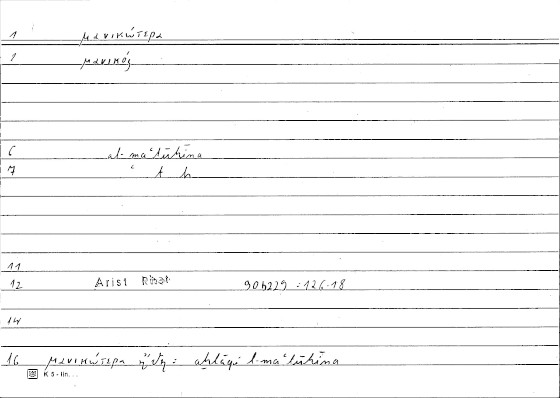 1 μανικώτερα
2 μανικός
6 al-maʿtūhīna
7 ʿ t h
11
12 Arist Rhet 90b29 : 126.18
14
16 μανικώτερα ἤθη : aḫlāqi l-maʿtūhīna
K 5 - lin...